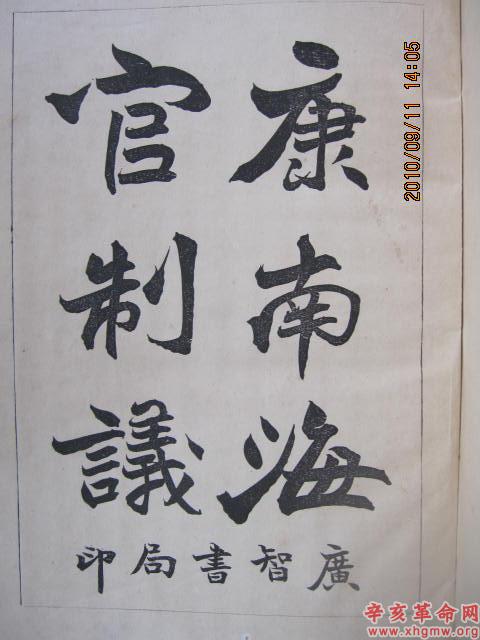 康南海
官制議
廣智書局印
2010/09/11 14:05
辛亥革命网
www.xhgmw.org